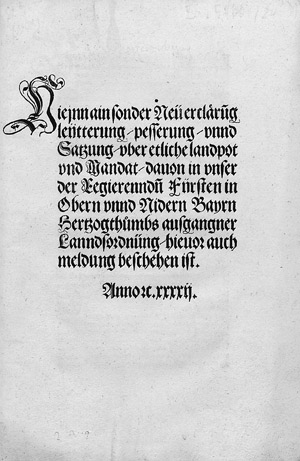 Hieynn ain sonder Neü erclärūg
leütterung / pesserung / vnnd
Satzung / vber etliche landpot
vnd Mandat / dauon in vnser
der Regierenndn̄ Fürsten in
Obern vnnd Nidern Bayrn
Hertzogthůmbs außgangner
Lanndßordnüng / hieuor auch
meldung beschehen ist.
Anno ꝛc. xxxxij.